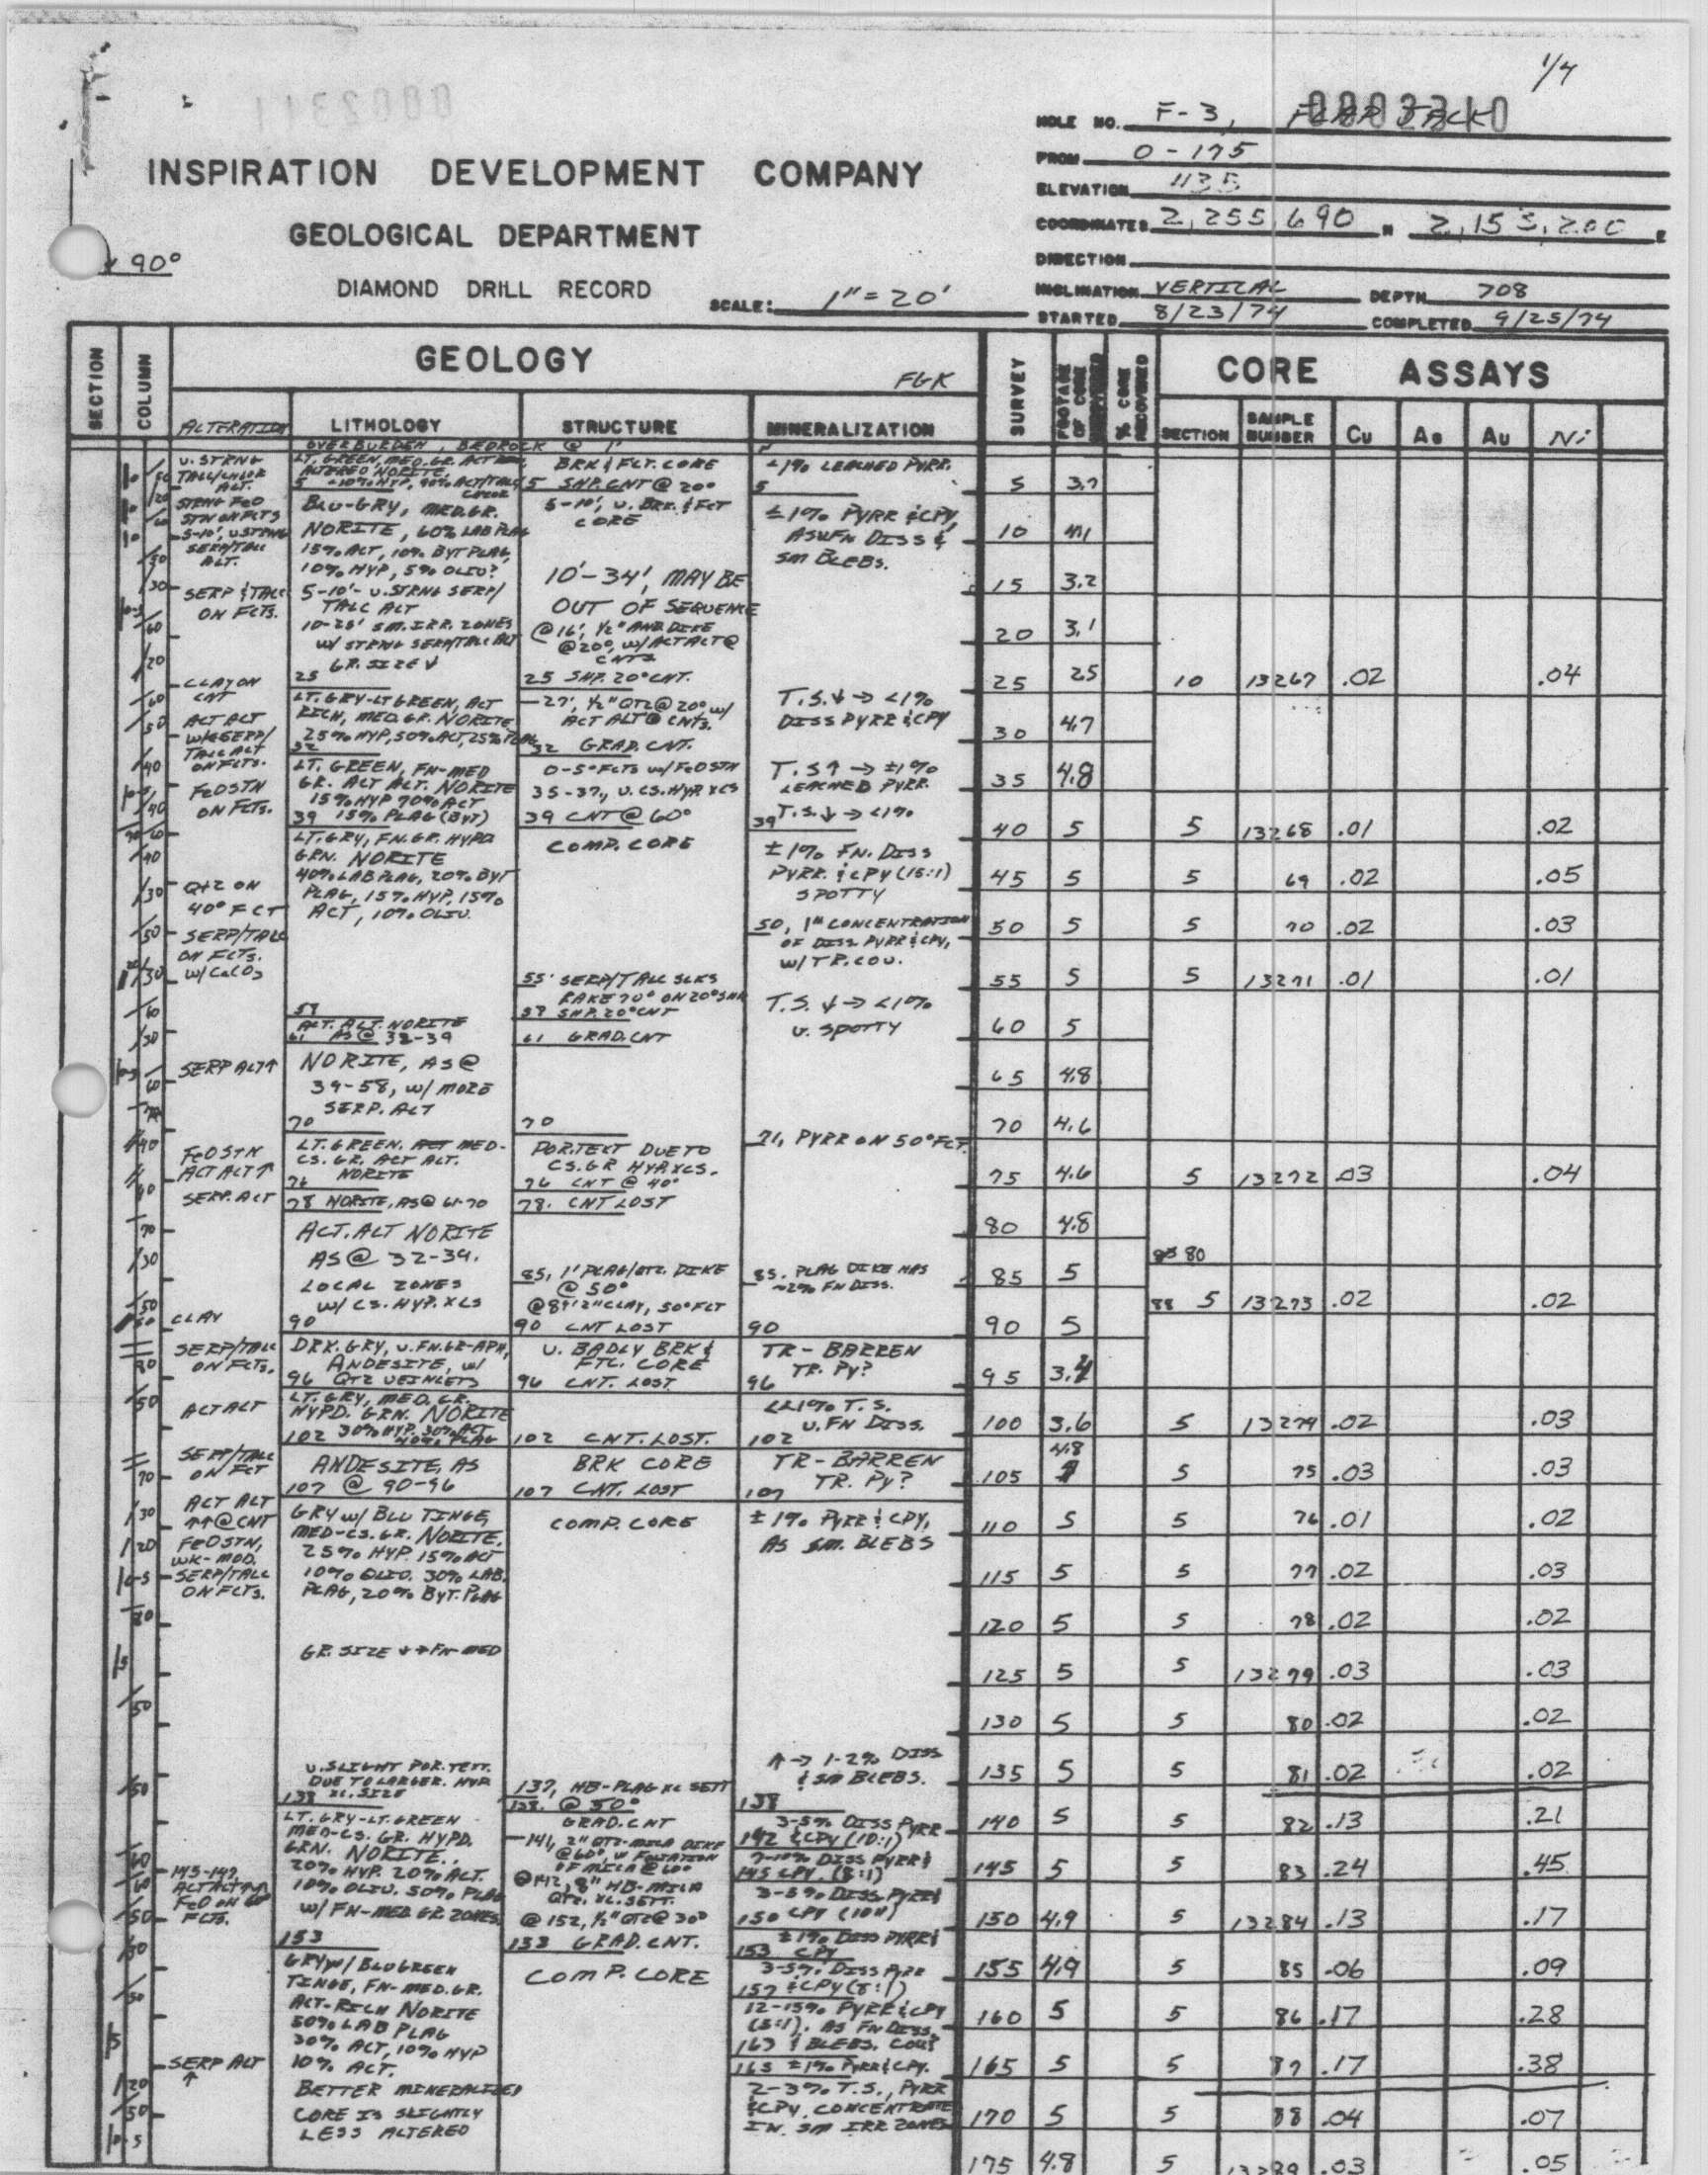 1/4
0002311
0002310
HOLE NO. F-3,
FROM 0-175
INSPIRATION DEVELOPMENT COMPANY
ELEVATION 1135
COORDINATES 2,255,690 N 2,153,200 E
GEOLOGICAL DEPARTMENT
DIRECTION
90°
DIAMOND DRILL RECORD
SCALE: 1"=20'
INCLINATION VERTICAL DEPTH 708
STARTED 8/23/74 COMPLETED 9/25/74
SECTION
COLUMN
GEOLOGY
FGK
SURVEY
FOOTAGE OF CORE
% CORE RECOVERED
CORE ASSAYS
ALTERATION LITHOLOGY STRUCTURE MINERALIZATION
SECTION SAMPLE NUMBER Cu Ag Au Ni
OVERBURDEN, BEDROCK @ 1'
V. STRNG
TALC/CHLOR
ALT.
STRNG FeO
STN ON FCTS
5-10', V STRNG
SERP/TALC
ALT.
SERP & TALC
ON FCTS.
CLAY ON
CNT
ACT ALT
W/ SERP/
TALC ALT
ON FCTS.
FeOSTN
ON FCTS.
QTZ ON
40° FCT
SERP/TALC
ON FCTS.
W/CaCO3
SERP ALT↑
FeOSTN
ACT ALT↑
SERP. ALT
CLAY
SERP/TALC
ON FCTS.
ACT ALT
SERP/TALC
ON FCT
ACT ALT
↑↑@CNT
FeOSTN,
WK-MOD.
SERP/TALC
ON FCTS.
FCTS.
SERP ALT
↑
LT. GREEN, MED. GR. ACT
ALTERED NORITE,
BLU-GRY, MED.GR.
NORITE, 60% LAB PLAG
15% ACT, 10% BYT PLAG,
10% HYP, 5% OLIV?
5-10'- V. STRNG SERP/
TALC ALT
10-25' SM. IRR. ZONES
W/ STRNG SERP/TALC ALT
GR. SIZE ↓
25
LT. GRY-LT GREEN, ACT
RICH, MED. GR. NORITE
25% HYP, 50% ACT, 25% PLAG
32
LT. GREEN, FN-MED
GR. ACT ALT. NORITE
15% HYP 70% ACT
39 15% PLAG (BYT)
LT. GRY, FN. GR. HYPD
GRN. NORITE
40% LAB PLAG, 20% BYT
PLAG, 15% HYP, 15%
ACT, 10% OLIV.
ACT. ALT. NORITE
61 AS @ 32-39
NORITE, AS @
39-58, W/ MORE
SERP. ALT
70
LT. GREEN, MED-
CS. GR. ACT ALT.
76 NORITE
78 NORITE, AS @ 61-70
ACT. ALT NORITE
AS @ 32-39.
LOCAL ZONES
W/ CS. HYP. XLS
90
DRK. GRY, V. FN. GR-APH,
ANDESITE, W/
96 QTZ VEINLETS
LT. GRY, MED. GR.
HYPD. GRN. NORITE
102 30% HYP. 30% ACT
40% PLAG
ANDESITE, AS
107 @ 90-96
GRY W/ BLU TINGE,
MED-CS. GR. NORITE,
25% HYP. 15% ACT
10% OLIV. 30% LAB.
PLAG, 20% BYT. PLAG
GR. SIZE ↓→FN-MED
V. SLIGHT POR. TEXT.
DUE TO LARGER. HYP
138 XL. SIZE
LT. GRY-LT. GREEN
MED-CS. GR. HYPD.
GRN. NORITE.
20% HYP. 20% ACT.
10% OLIV. 50% PLAG
W/ FN-MED GR ZONES.
153
GRY W/ BLU GREEN
TINGE, FN-MED. GR.
ACT-RICH NORITE
50% LAB PLAG
30% ACT, 10% HYP
10% ACT.
BETTER MINERALIZED
CORE IS SLIGHTLY
LESS ALTERED
BRK & FCT. CORE
5 SHP. CNT @ 20°
5-10', V. BRK. & FCT
CORE
10'-34', MAY BE
OUT OF SEQUENCE
@ 16', 1/2" AND DIKE
@ 20°, W/ ACT ALT @
CNTS
25 SHP. 20° CNT.
27', 1/2" QTZ @ 20°, W/
ACT ALT @ CNTS.
32 GRAD. CNT.
0-5° FCTS W/ FeOSTN
35-37, V. CS. HYP XLS
39 CNT @ 60°
COMP. CORE
55' SERP/TALC SLKS
RAKE 70° ON 20° SHR
SHP. 20° CNT
61 GRAD. CNT
70
POR. TEXT DUE TO
CS. GR HYP XLS.
76 CNT @ 40°
78. CNT LOST
85, 1' PLAG/QTZ. DIKE
@ 50°
@ 89' 2" CLAY, 50° FCT
90 CNT LOST
V. BADLY BRK &
FTC. CORE
96 CNT. LOST
102 CNT. LOST.
BRK CORE
107 CNT. LOST
COMP. CORE
137, HB-PLAG XL SETT
138. @ 50°
GRAD. CNT
141, 2" QTZ-MICA DIKE
@ 60°, W FOLIATION
OF MICA @ 60°
@ 142, 8" HB-MICA
QTZ. XL. SETT.
@ 152, 1/2" QTZ @ 30°
153 GRAD. CNT.
COMP. CORE
±1% LEACHED PYRR.
5
±1% PYRR & CPY,
AS V FN DISS &
SM BLEBS.
T.S. ↓ → <1%
DISS PYRR & CPY
T.S ↑ → ±1%
LEACHED PYRR.
39 T.S. ↓ → <1%
±1% FN. DISS
PYRR. & CPY (15:1)
SPOTTY
50, 1" CONCENTRATION
OF DISS PYRR & CPY,
W/ TR. COV.
T.S. ↓ → <1%
V. SPOTTY
71, PYRR ON 50° FCT.
85. PLAG DIKE HAS
~2% FN DISS.
90
TR - BARREN
TR. PY?
96
<<1% T.S.
V. FN DISS.
102
TR - BARREN
TR. PY?
107
±1% PYRR & CPY,
AS SM. BLEBS
↑ → 1-2% DISS
& SM BLEBS.
138
3-5% DISS PYRR
142 & CPY (10:1)
7-10% DISS PYRR &
145 CPY. (8:1)
3-5% DISS PYRR &
150 CPY (10:1)
±1% DISS PYRR &
153 CPY
3-5% DISS PYRR
157 & CPY (5:1)
12-15% PYRR & CPY
(5:1). AS FN DISS.
163 & BLEBS. COV?
165 ±1% PYRR & CPY.
2-3% T.S., PYRR
& CPY CONCENTRATE
IN. SM IRR ZONES
5 3.7
10
15 3.2
20 3.1
25 25 10 13267 .02 .04
30 4.7
35 4.8
40 5 5 13268 .01 .02
45 5 5 69 .02 .05
50 5 5 70 .02 .03
55 5 5 13271 .01 .01
60 5
65 4.8
70 4.6
75 4.6 5 13272 .03 .04
80 4.8
80
85 5
5 13273 .02 .02
90 5
95 3.4
100 3.6 5 13274 .02 .03
105 4.8 5 75 .03 .03
110 5 5 76 .01 .02
115 5 5 77 .02 .03
120 5 5 78 .02 .02
125 5 5 13279 .03 .03
130 5 5 80 .02 .02
135 5 5 81 .02 .02
140 5 5 82 .13 .21
145 5 5 83 .24 .45
150 4.9 5 13284 .13 .17
155 4.9 5 85 .06 .09
160 5 5 86 .17 .28
165 5 5 87 .17 .38
170 5 5 88 .04 .07
175 4.8 5 13289 .03 .05